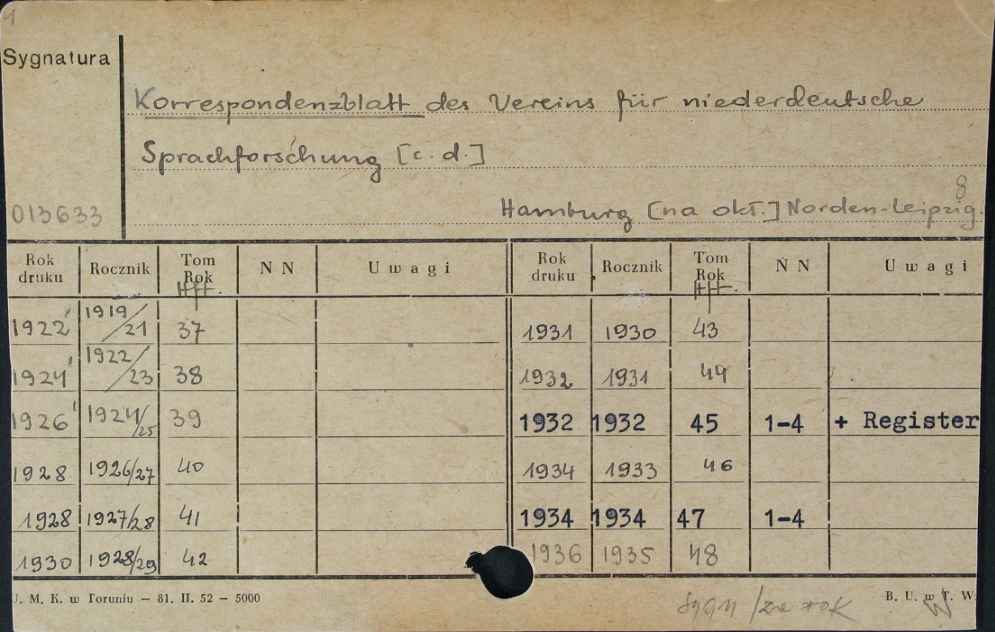 1
Sygnatura
Korrespondenzblatt des Vereins für niederdeutsche
Sprachforschung [c.d.]
8
013633
Hamburg [na okł.] Norden-Leipzig.
Rok druku Rocznik Tom Rok NN Uwagi Rok druku Rocznik Tom Rok NN Uwagi
1922 1919/21 37 1931 1930 43
1924 1922/23 38 1932 1931 44
1926 1924/25 39 1932 1932 45 1-4 + Register
1928 1926/27 40 1934 1933 46
1928 1927/28 41 1934 1934 47 1-4
1930 1928/29 42 1936 1935 48
U. M. K. w Toruniu — 81. II. 52 — 5000
rok
B. U. w T. W.